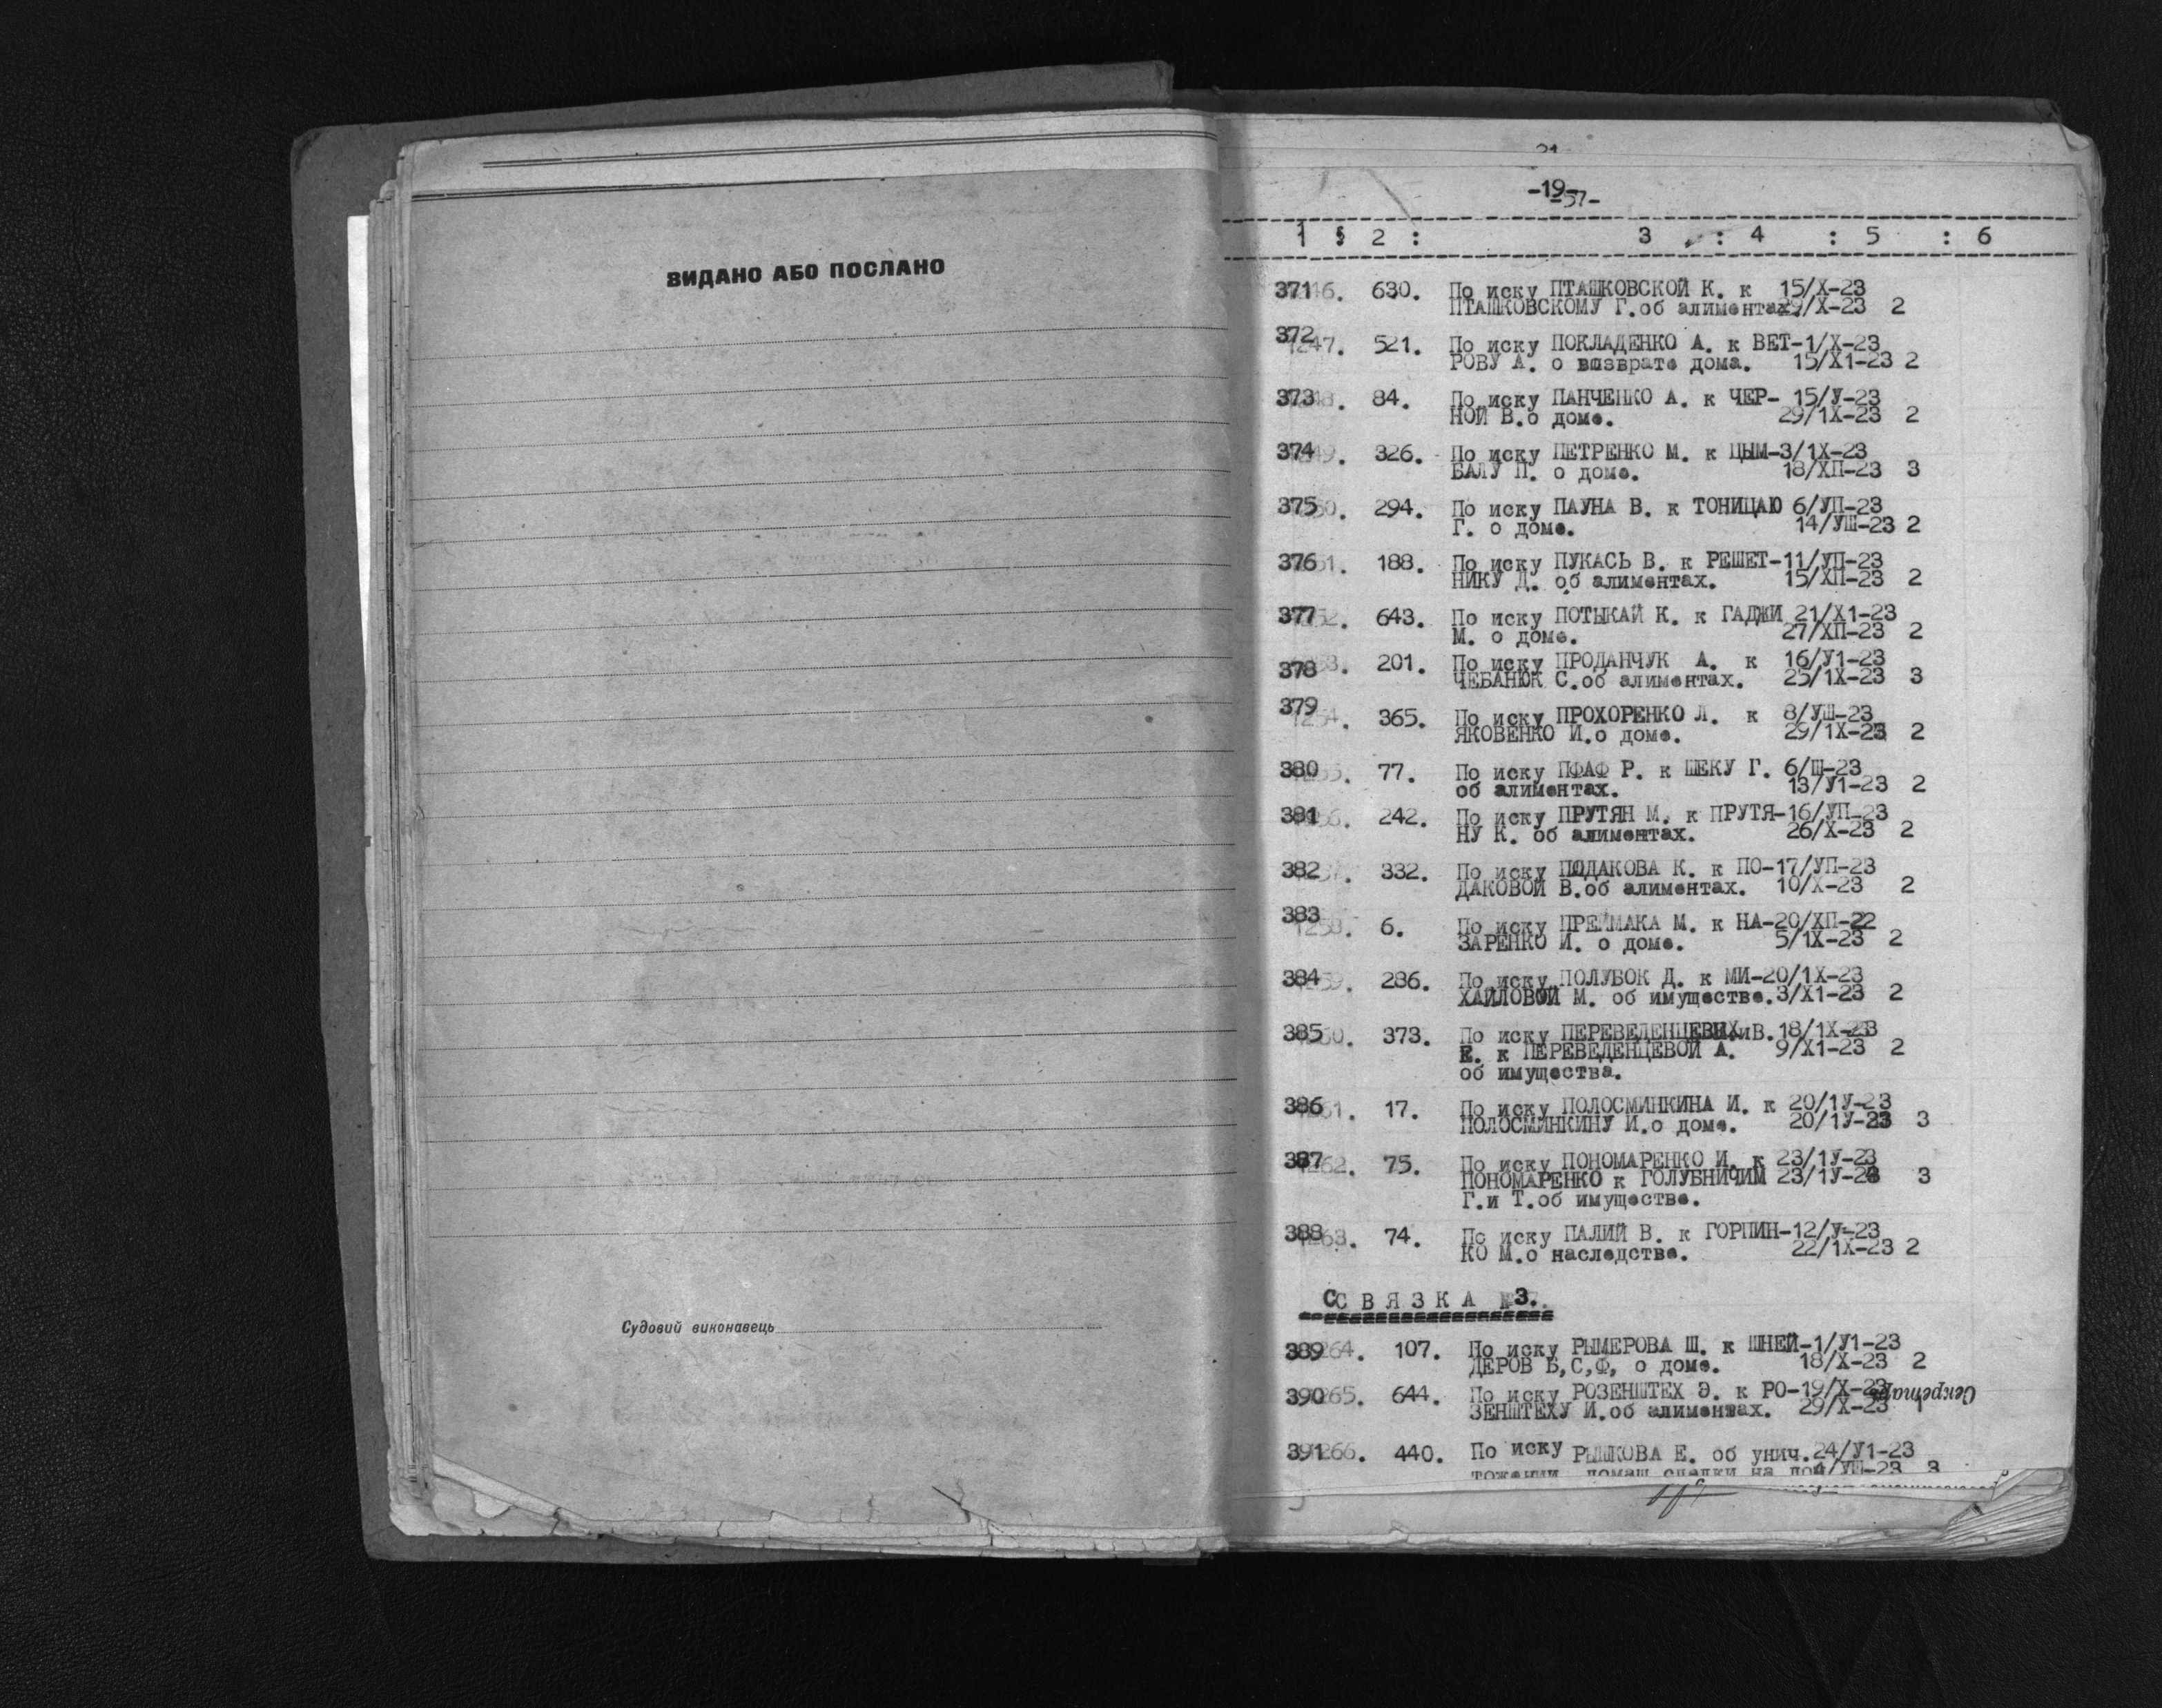 ВИДАНО АБО ПОСЛАНО
Судовий виконавець
21
-19-
-57-
1 : 2 : 3 : 4 : 5 : 6
371 630. По иску ПТАШКОВСКОЙ К. к 15/X-23
ПТАШКОВСКОМУ Г.об алиментах. 29/X-23 2
372 1247. 521. По иску ПОКЛАДЕНКО А. к ВЕТ-1/X-23
РОВУ А. о возврате дома. 15/X1-23 2
373 84. По иску ПАНЧЕНКО А. к ЧЕР- 15/У-23
НОЙ В.о доме. 29/1X-23 2
374 326. По иску ПЕТРЕНКО М. к ЦЫМ-3/1X-23
БАЛУ П. о доме. 18/ХП-23 3
375 294. По иску ПАУНА В. к ТОНИЦАЮ 6/УП-23
Г. о доме. 14/УШ-23 2
376 188. По иску ПУКАСЬ В. к РЕШЕТ-11/УП-23
НИКУ Д. об алиментах. 15/ХП-23 2
377 643. По иску ПОТЫКАЙ К. к ГАДЖИ 21/X1-23
М. о доме. 27/ХП-23 2
378 201. По иску ПРОДАНЧУК А. к 16/У1-23
ЧЕБАНЮК С.об алиментах. 25/1X-23 3
379 1254. 365. По иску ПРОХОРЕНКО Л. к 8/УШ-23
ЯКОВЕНКО И.о доме. 29/1X-23 2
380 77. По иску ПФАФ Р. к ШЕКУ Г. 6/Ш-23
об алиментах. 13/У1-23 2
381 242. По иску ПРУТЯН М. к ПРУТЯ-16/УП-23
НУ К. об алиментах. 26/X-23 2
382 332. По иску ПОДАКОВА К. к ПО-17/УП-23
ДАКОВОЙ В.об алиментах. 10/X-23 2
383 1258. 6. По иску ПРЕЙМАКА М. к НА-20/ХП-22
ЗАРЕНКО И. о доме. 5/1X-23 2
384 286. По иску ПОЛУБОК Д. к МИ-20/1X-23
ХАЙЛОВОЙ М. об имуществе.3/X1-23 2
385 373. По иску ПЕРЕВЕДЕНЦЕВЫХ В. 18/1X-23
Е. к ПЕРЕВЕДЕНЦЕВОЙ А. 9/X1-23 2
об имущества.
386 17. По иску ПОЛОСМИНКИНА И. к 20/1У-23
ПОЛОСМИНКИНУ И.о доме. 20/1У-23 3
387 75. По иску ПОНОМАРЕНКО И. к 23/1У-23
ПОНОМАРЕНКО к ГОЛУБНИЧИМ 23/1У-23 3
Г.и Т.об имуществе.
388 74. По иску ПАЛИЙ В. к ГОРПИН-12/У-23
КО М.о наследстве. 22/1X-23 2
С В Я З К А 3.
389 107. По иску РЫМЕРОВА Ш. к ШНЕЙ-1/У1-23
ДЕРОВ Б,С,Ф, о доме. 18/X-23 2
390 644. По иску РОЗЕНШТЕХ Э. к РО-19/X-23
ЗЕНШТЕХУ И.об алиментах. 29/X-23 1
Секретарь
391 440. По иску РЫШКОВА Е. об унич.24/У1-23
тожении домаш сделки на дом /УШ-23 3